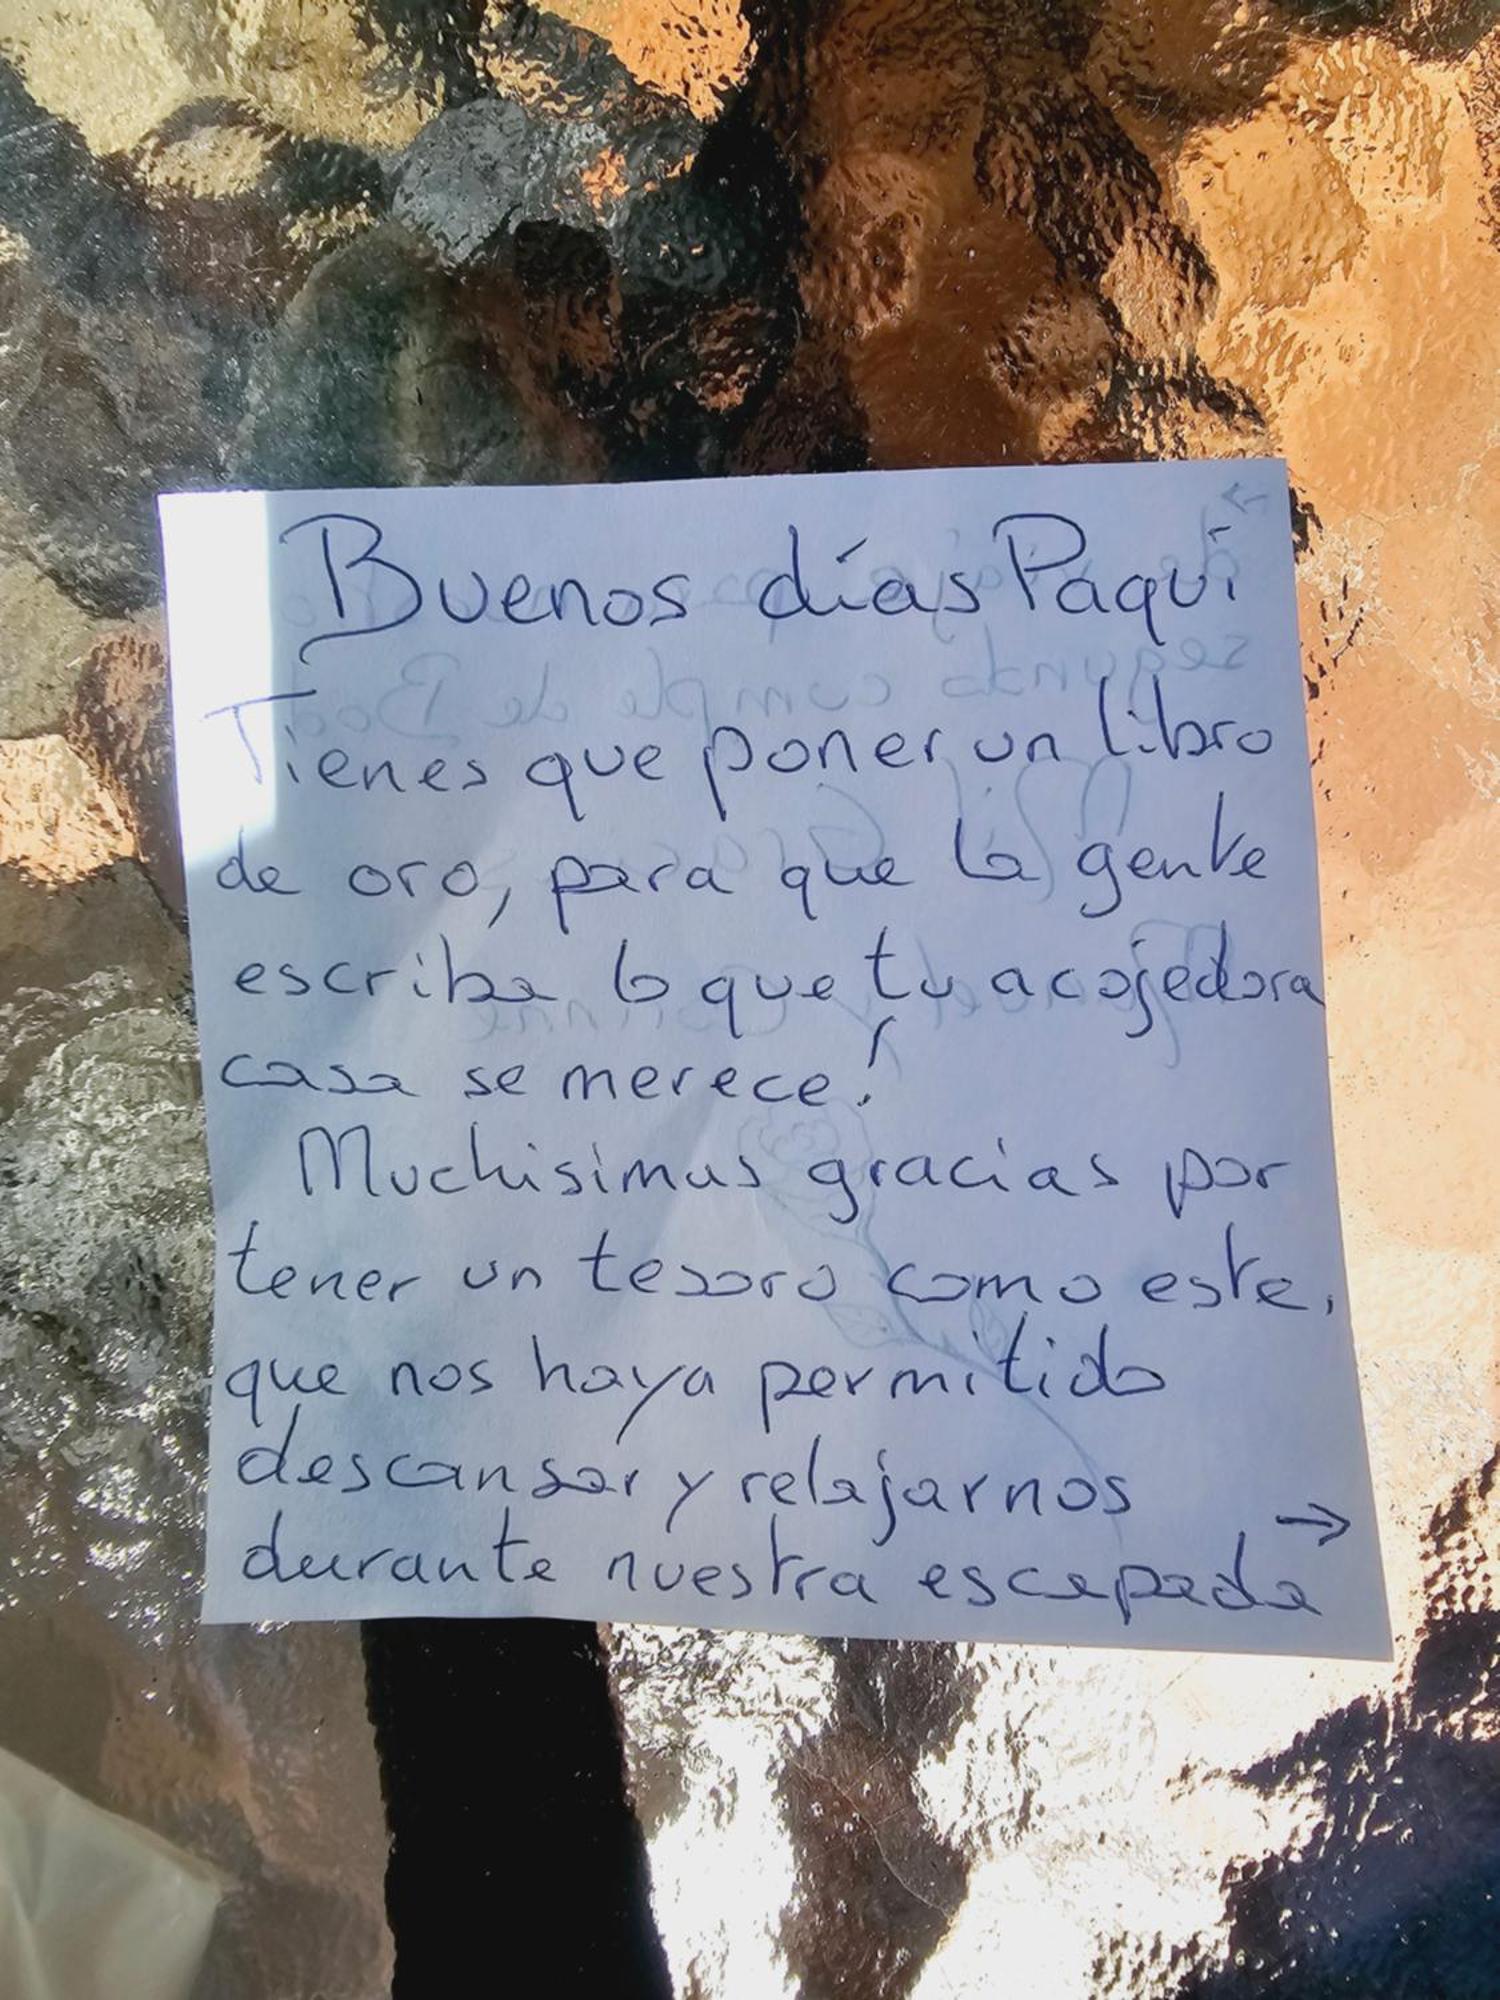 Buenos días Paqui
Tienes que poner un libro
de oro, para que la gente
escriba lo que tu acojedora
casa se merece!
Muchisimas gracias por
tener un tesoro como este,
que nos haya permitido
descansar y relajarnos
durante nuestra escapada
→